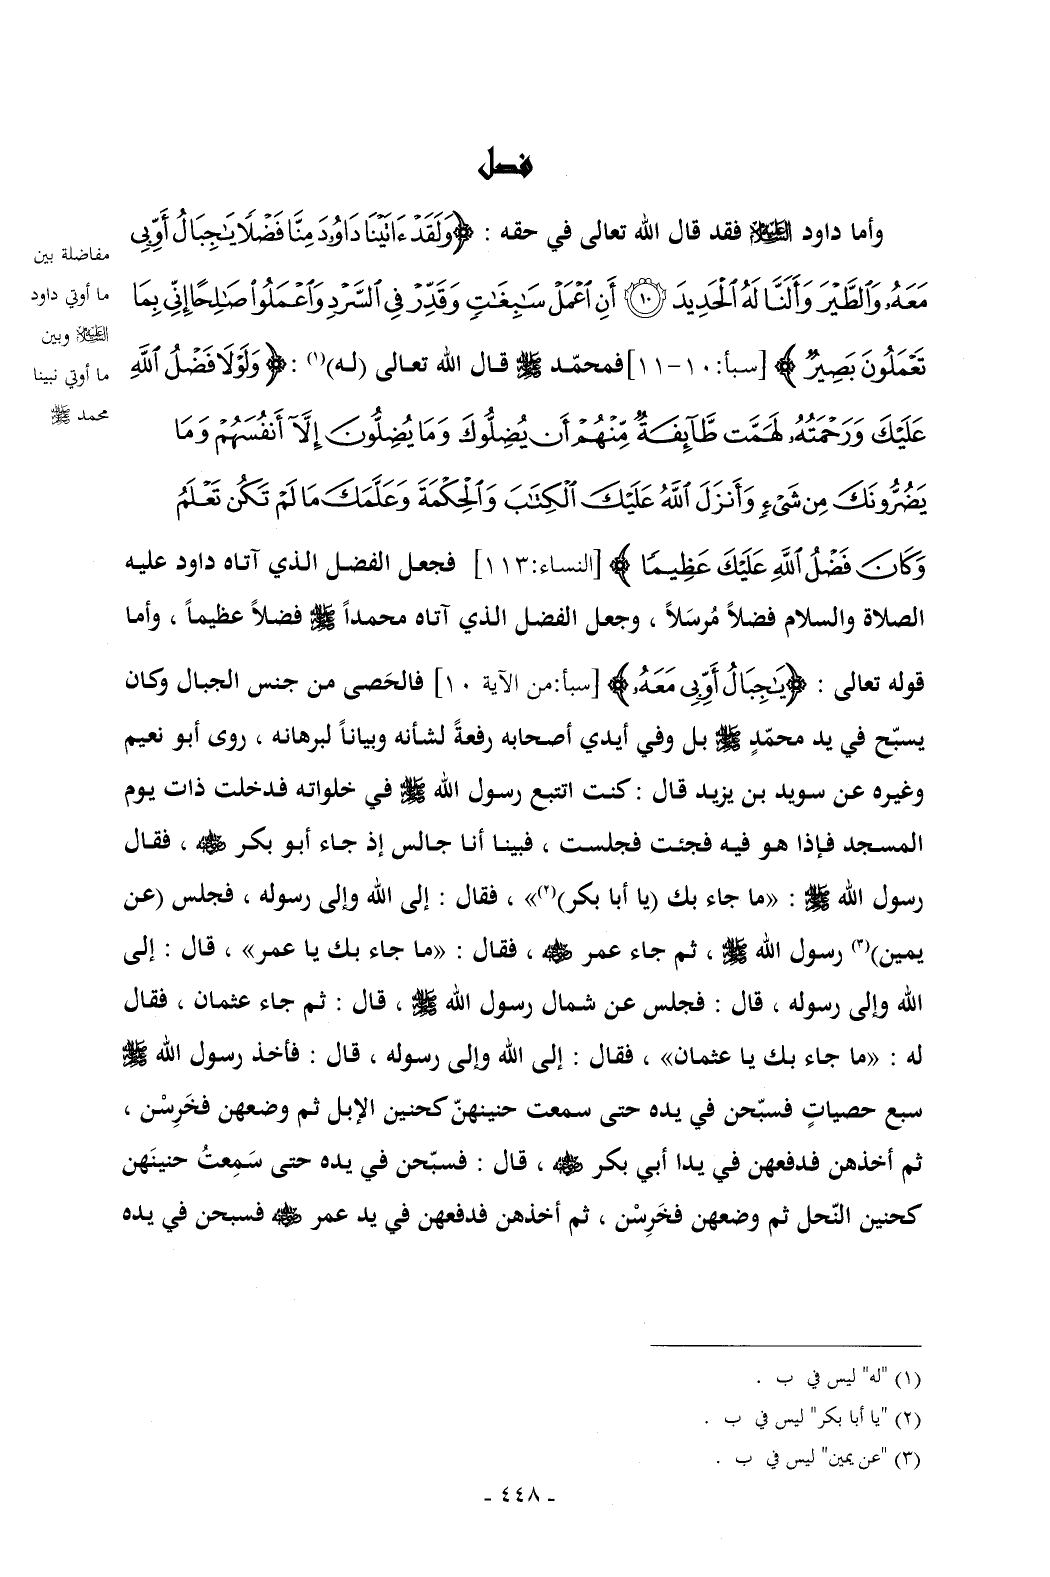 فصل
وأما داود عليه السلام فقد قال الله تعالى في حقه : ﴿وَلَقَدْ ءَاتَيْنَا دَاوُۥدَ مِنَّا فَضْلًا يَـٰجِبَالُ أَوِّبِى
مَعَهُۥ وَٱلطَّيْرَ وَأَلَنَّا لَهُ ٱلْحَدِيدَ ۝١٠ أَنِ ٱعْمَلْ سَـٰبِغَـٰتٍ وَقَدِّرْ فِى ٱلسَّرْدِ وَٱعْمَلُوا۟ صَـٰلِحًا إِنِّى بِمَا
تَعْمَلُونَ بَصِيرٌ﴾ [سبأ:١٠-١١] فمحمّد ﷺ قال الله تعالى (له)(١) : ﴿وَلَوْلَا فَضْلُ ٱللَّهِ
عَلَيْكَ وَرَحْمَتُهُۥ لَهَمَّت طَّآئِفَةٌ مِّنْهُمْ أَن يُضِلُّوكَ وَمَا يُضِلُّونَ إِلَّآ أَنفُسَهُمْ وَمَا
يَضُرُّونَكَ مِن شَىْءٍ وَأَنزَلَ ٱللَّهُ عَلَيْكَ ٱلْكِتَـٰبَ وَٱلْحِكْمَةَ وَعَلَّمَكَ مَا لَمْ تَكُن تَعْلَمُ
وَكَانَ فَضْلُ ٱللَّهِ عَلَيْكَ عَظِيمًا﴾ [النساء:١١٣] فجعل الفضل الذي آتاه داود عليه
الصلاة والسلام فضلاً مُرسَلاً ، وجعل الفضل الذي آتاه محمداً ﷺ فضلاً عظيماً ، وأما
قوله تعالى : ﴿يَـٰجِبَالُ أَوِّبِى مَعَهُۥ﴾ [سبأ:من الآية ١٠] فالحَصى من جنس الجبال وكان
يسبّح في يد محمّدٍ ﷺ بل وفي أيدي أصحابه رفعةً لشأنه وبياناً لبرهانه ، روى أبو نعيم
وغيره عن سويد بن يزيد قال : كنت اتتبع رسول الله ﷺ في خلواته فدخلت ذات يوم
المسجد فإذا هو فيه فجئت فجلست ، فبينا أنا جالس إذ جاء أبو بكر رضي الله عنه ، فقال
رسول الله ﷺ : «ما جاء بك (يا أبا بكر)(٢)» ، فقال : إلى الله وإلى رسوله ، فجلس (عن
يمين)(٣) رسول الله ﷺ ، ثم جاء عمر رضي الله عنه ، فقال : «ما جاء بك يا عمر» ، قال : إلى
الله وإلى رسوله ، قال : فجلس عن شمال رسول الله ﷺ ، قال : ثم جاء عثمان ، فقال
له : «ما جاء بك يا عثمان» ، فقال : إلى الله وإلى رسوله ، قال : فأخذ رسول الله ﷺ
سبع حصياتٍ فسبّحن في يده حتى سمعت حنينهنّ كحنين الإبل ثم وضعهن فخَرِسْن ،
ثم أخذهن فدفعهن في يدا أبي بكر رضي الله عنه ، قال : فسبّحن في يده حتى سَمِعتُ حنينَهن
كحنين النّحل ثم وضعهن فخَرِسْن ، ثم أخذهن فدفعهن في يد عمر رضي الله عنه فسبحن في يده
مفاضلة بين
ما أوتي داود
عليه السلام وبين
ما أوتي نبينا
محمد ﷺ
(١) "له" ليس في ب .
(٢) "يا أبا بكر" ليس في ب .
(٣) "عن يمين" ليس في ب .
- ٤٤٨ -